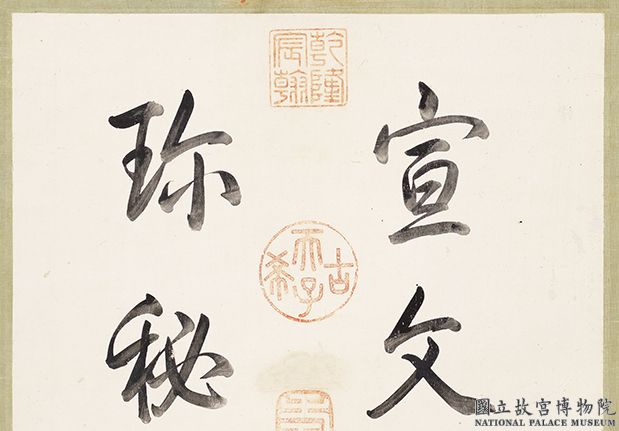 宣文
乾隆
宸翰
古希天子
珎秘
國立故宮博物院
NATIONAL PALACE MUSEUM